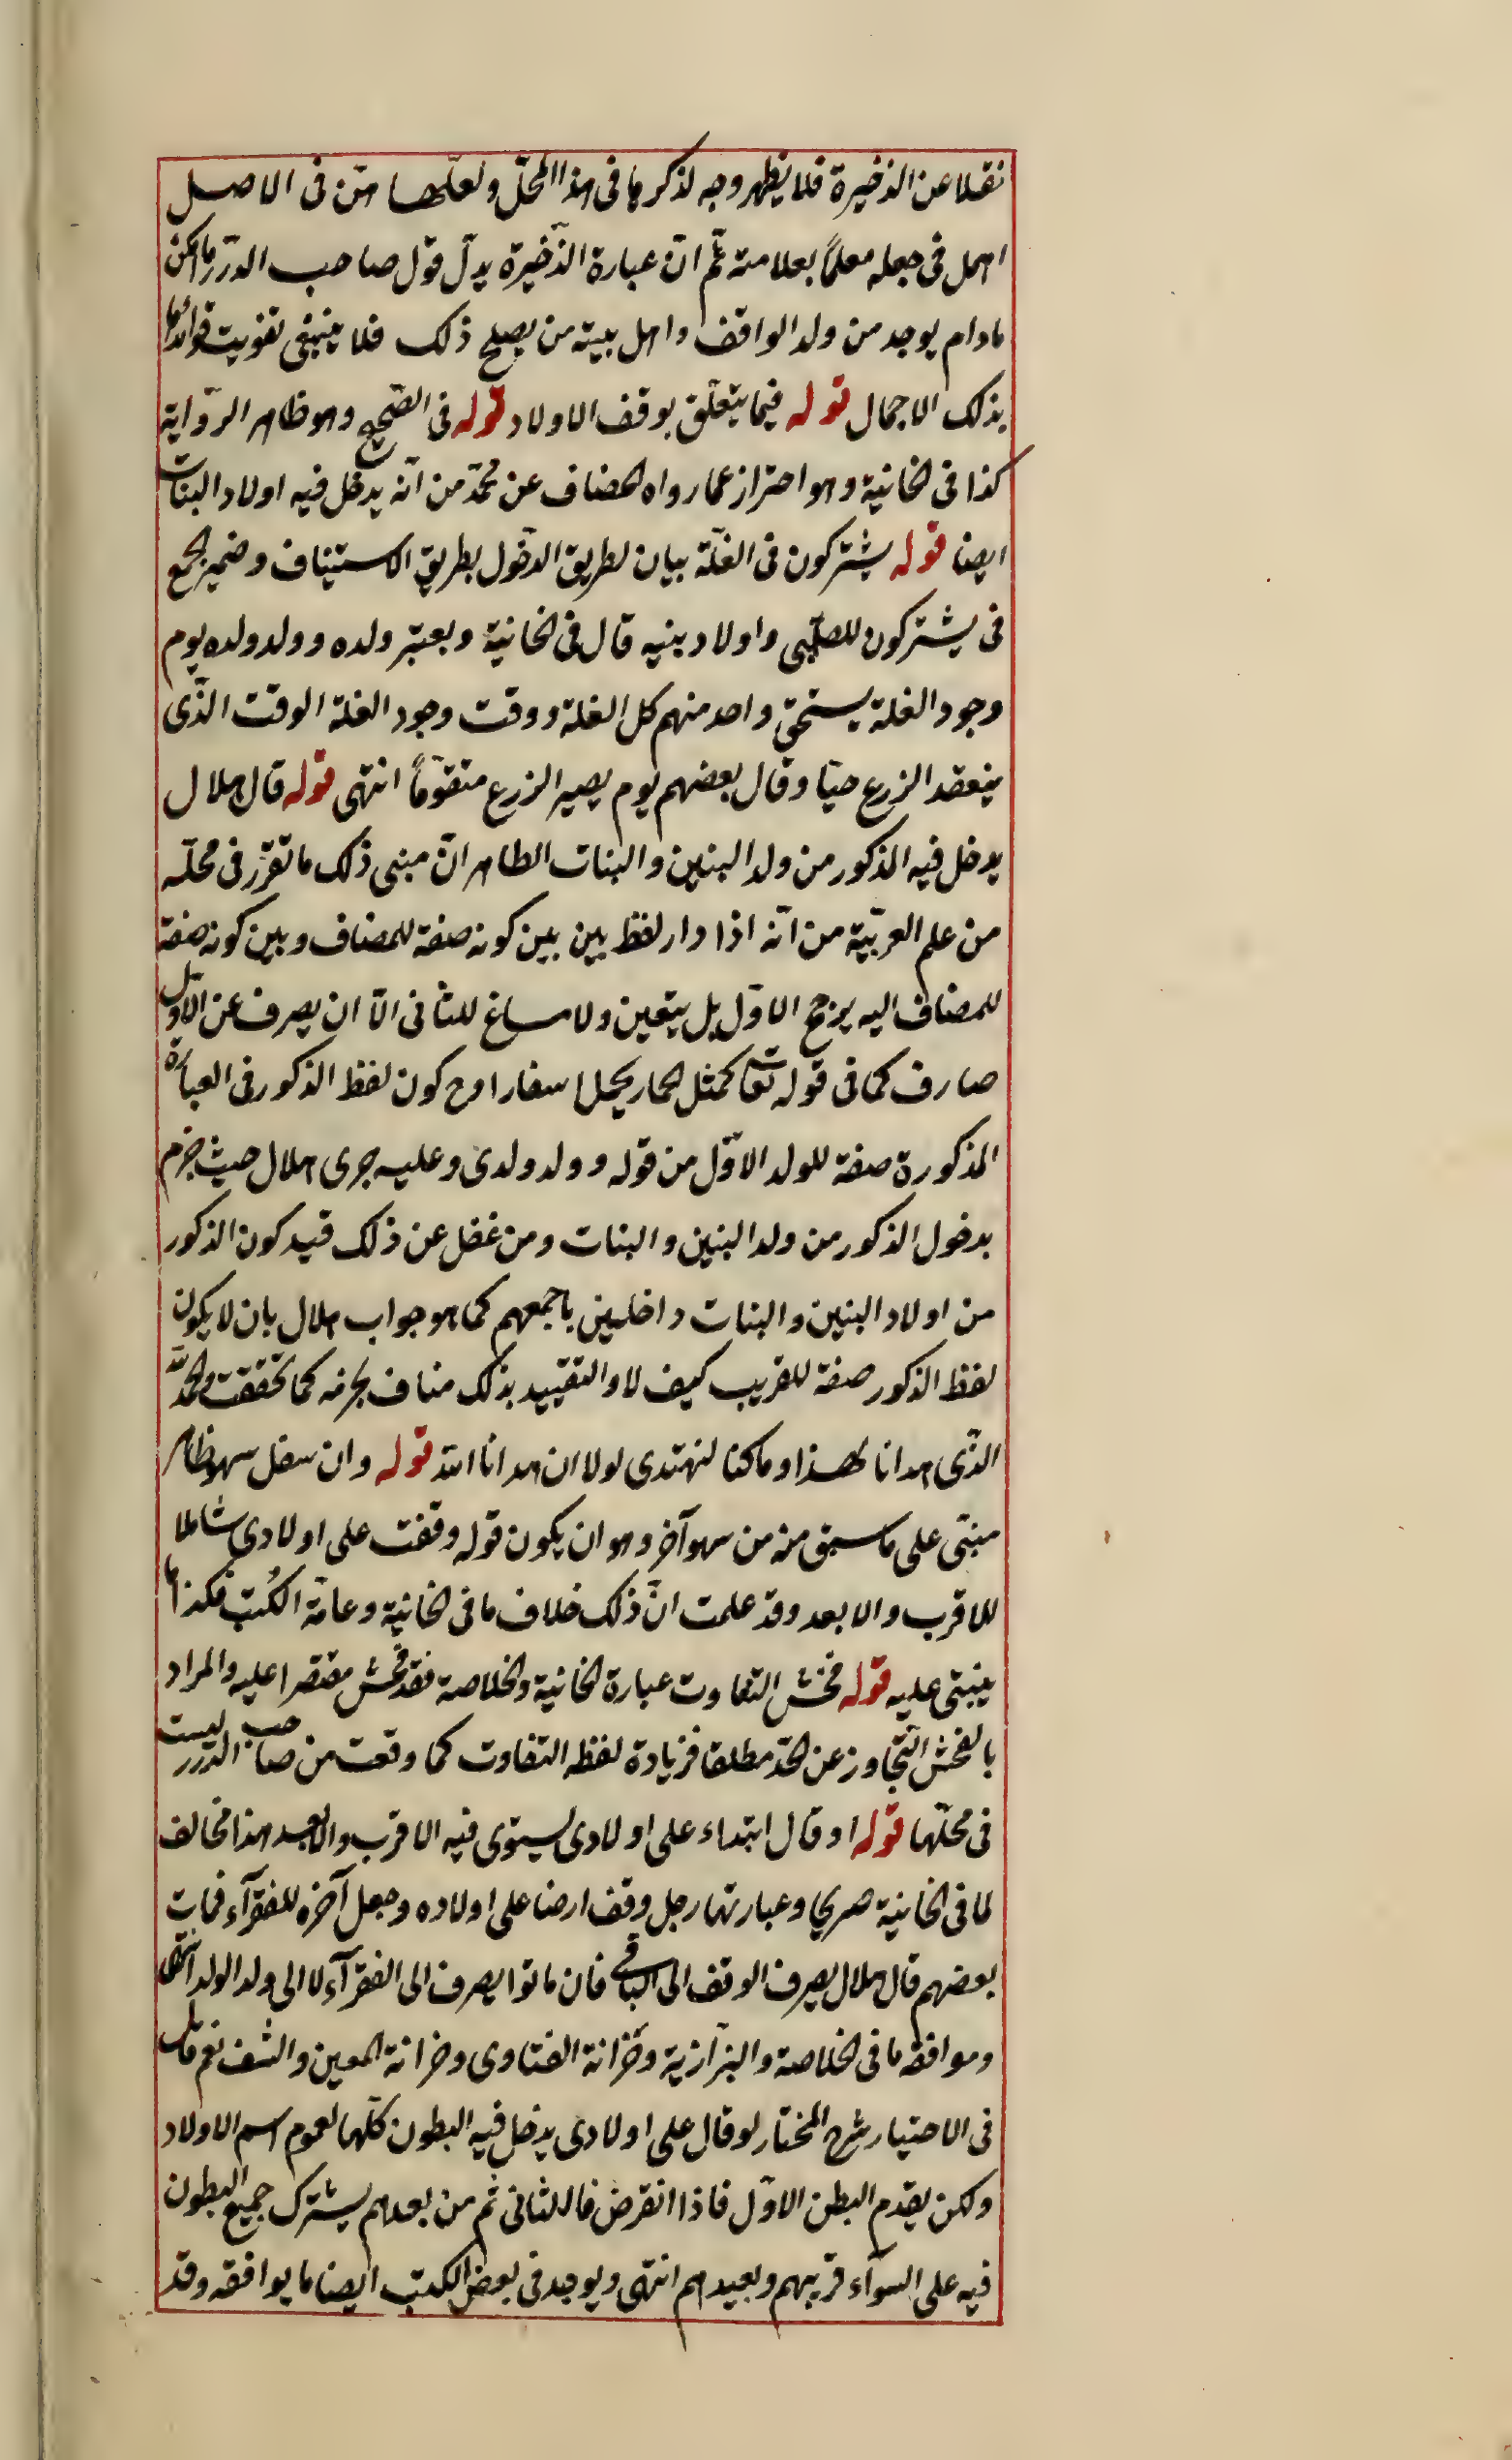 نقلا عن الذخيرة فلا يظهر وجه لذكرها فى هذا المحلّ ولعلّها متن فى الاصل
اهمل فى جعله معلمًا بعلامته ثمّ انّ عبارة الذّخيرة يدلّ قول صاحب الدّرر ما امكن
مادام يوجد من ولد الواقف واهل بيته من يصلح ذلك فلا ينبغى تفويت فوائدها
بذلك الاجمال قوله فيما يتعلّق بوقف الاولاد قوله فى الصّحيح وهو ظاهر الرّواية
كذا فى الخانية وهو احتراز عما رواه الخصاف عن محمّد من انّه يدخل فيه اولاد البنات
ايضا قوله يشتركون فى الغلّة بيان لطريق الدّخول بطريق الاستيناف وضمير الجمع
فى يشتركون للصلبى واولاد بنيه قال فى الخانية ويعتبر ولده وولد ولده يوم
وجود الغلة يستحقّ واحد منهم كل الغلة ووقت وجود الغلة الوقت الذّى
ينعقد الزرع حبّا وقال بعضهم يوم يصير الزرع متقوّماً انتهى قوله قال هلال
يدخل فيه الذكور من ولد البنين والبنات الظاهر انّ مبنى ذلك ما تقرّر فى محلّه
من علم العربيّة من انّه اذا دار لفظ بين بين كونه صفة للمضاف وبين كونه صفة
للمضاف اليه يرجح الاوّل بل يتعين ولا مساغ للثانى الّا ان يصرف عن الاوّل
صارف كما فى قوله تعا كمثل الحمار يحمل اسفارا وح كون لفظ الذكور فى العبارة
المذكورة صفة للولد الاوّل من قوله وولد ولدى وعليه جرى هلال حيث جزم
بدخول الذكور من ولد البنين والبنات ومن غفل عن ذلك قيد كون الذكور
من اولاد البنين والبنات داخلين باجمعهم كما هو جواب هلال بان لا يكون
لفظ الذكور صفة للقريب كيف لا والتقييد بذلك مناف لجزمه كما تحققت والحمد لله
الذّى هدانا لهذا وما كنا لنهتدى لولا ان هدانا الله قوله وان سفل سهو ظاهر
مبنى على ما سبق منه من سهو آخر وهو ان يكون قوله وقفت على اولادى شاملا
للاقرب والابعد وقد علمت انّ ذلك خلاف ما فى الخانية وعامّة الكُتب فكذا ما
يبتنى عليه قوله فحش التفاوت عبارة الخانية والخلاصة فقد فحش مقتصرا عليه والمراد
بالفحش التّجاوز عن الحدّ مطلقا فزيادة لفظ التفاوت كما وقعت من صاحب الدّرر ليست
فى محلّها قوله او قال ابتداء على اولادى يستوى فيه الاقرب والابعد هذا مخالف
لما فى الخانية صريحا وعبارتها رجل وقف ارضا على اولاده وجعل آخره للفقرآء فمات
بعضهم قال هلال يصرف الوقف الى الباقى فان ماتوا يصرف الى الفقرآء لا الى ولد الولد انتهى
وموافقه ما فى الخلاصة والبزّازية وخزانة الفتاوى وخزانة المعين والنتف نعم قال
فى الاختيار شرح المختار لو قال على اولادى يدخل فيه البطون كلّها لعموم اسم الاولاد
ولكن يقدم البطن الاوّل فاذا انقرض فالثانى ثم من بعدهم يشترك جميع البطون
فيه على السوآء قريبهم وبعيدهم انتهى ويوجد فى بعض الكتب ايضا ما يوافقه وقد